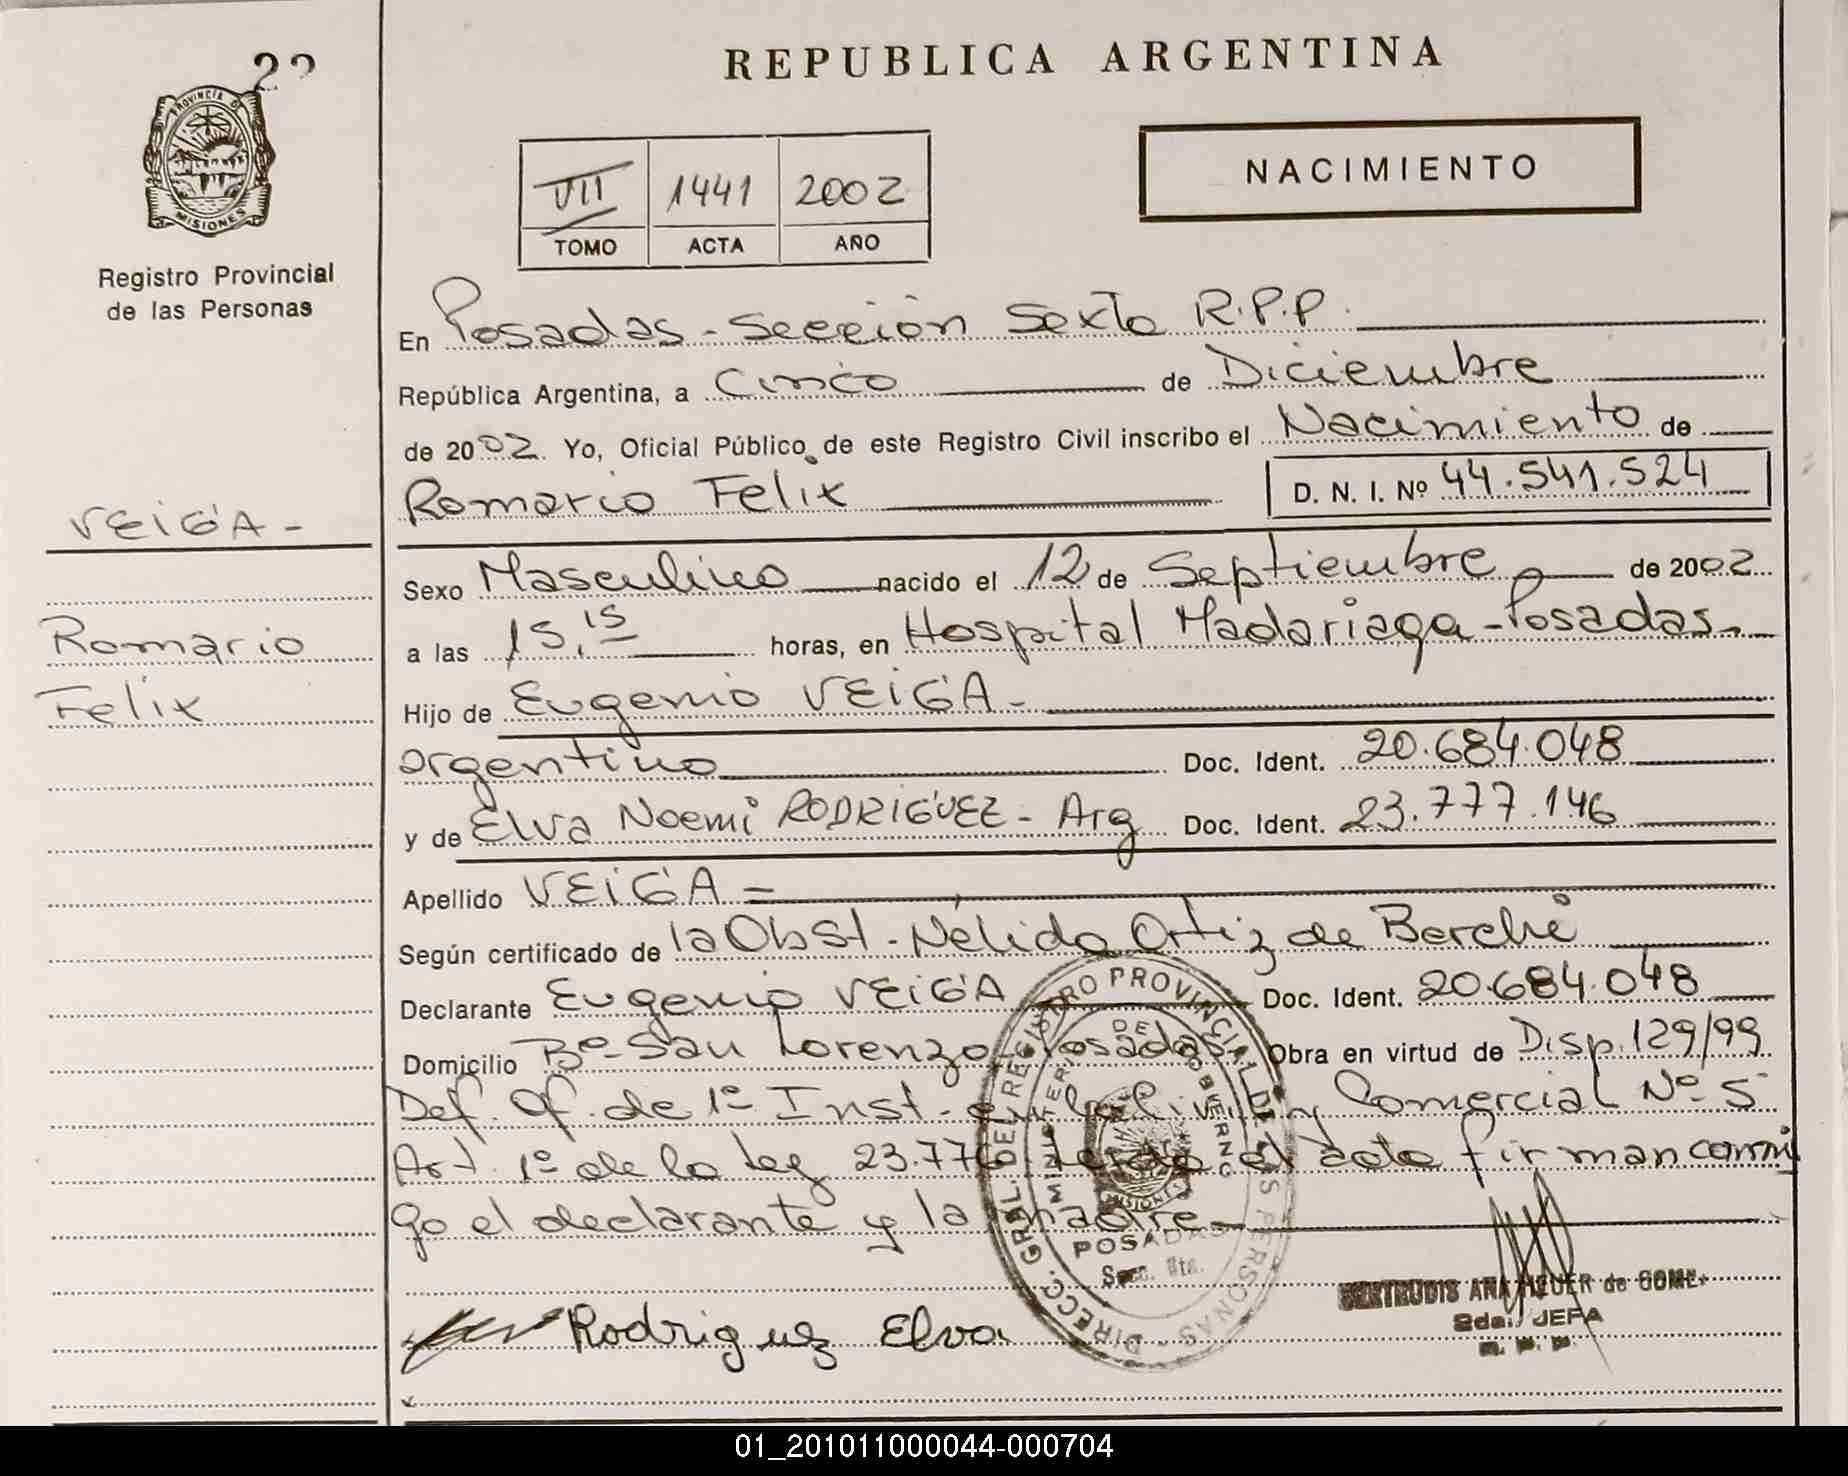 22
REPUBLICA ARGENTINA
PROVINCIA DE
MISIONES
Registro Provincial
de las Personas
VII 1441 2002
TOMO ACTA AÑO
NACIMIENTO
En Posadas - Sección Sexta R.P.P.
República Argentina, a Cinco de Diciembre
de 2002. Yo, Oficial Público de este Registro Civil inscribo el Nacimiento de
Romario Felix D. N. I. Nº 44.541.524
VEIGA -
Romario
Felix
Sexo Masculino nacido el 12 de Septiembre de 2002
a las 15,15 horas, en Hospital Madariaga - Posadas.
Hijo de Eugenio VEIGA -
argentino Doc. Ident. 20.684.048
y de Elva Noemi RODRIGUEZ - Arg Doc. Ident. 23.777.146
Apellido VEIGA =
Según certificado de la Obst. Nélida Ortiz de Berchi
Declarante Eugenio VEIGA Doc. Ident. 20.684.048
Domicilio Bº San Lorenzo - Posadas. Obra en virtud de Disp. 129/99
Def. Of. de 1º Inst. en lo Civil y Comercial Nº 5
Art. 1º de la Ley 23.776 el acta firman conmi
go el declarante y la madre
DIRECC. GRAL. DEL REGISTRO PROVINCIAL DE LAS PERSONAS
MINISTERIO DE GOBIERNO
MISIONES
POSADAS
Secc. 6ta.
Rodriguez Elva
GERTRUDIS ANA de GOMEZ
2da. JEFA
R. P. P.
01_201011000044-000704